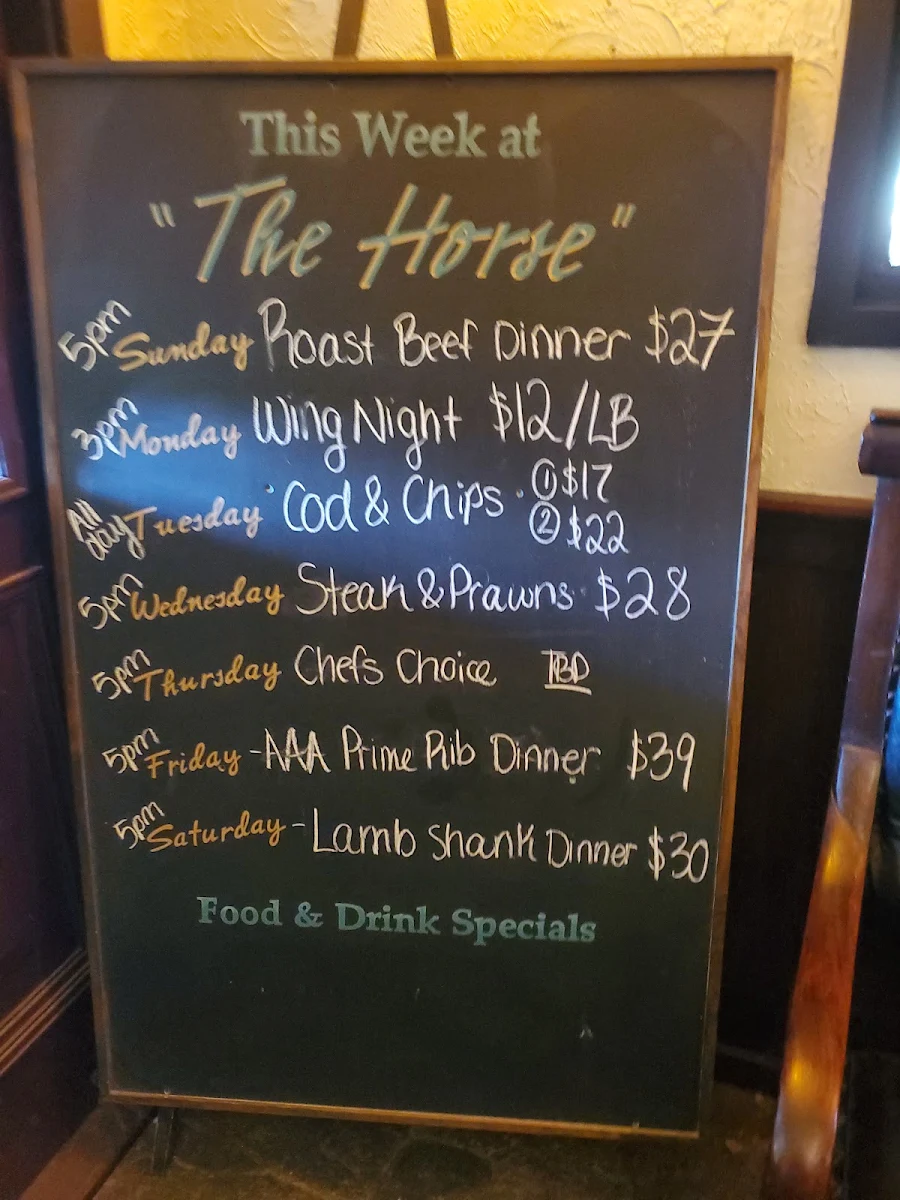 This Week at
"The Horse"
5pm Sunday Roast Beef Dinner $27
3pm Monday Wing Night $12/LB
All day Tuesday Cod & Chips · ① $17
② $22
5pm Wednesday Steak & Prawns · $28
5pm Thursday Chefs Choice TBD
5pm Friday - AAA Prime Rib Dinner $39
5pm Saturday - Lamb Shank Dinner $30
Food & Drink Specials